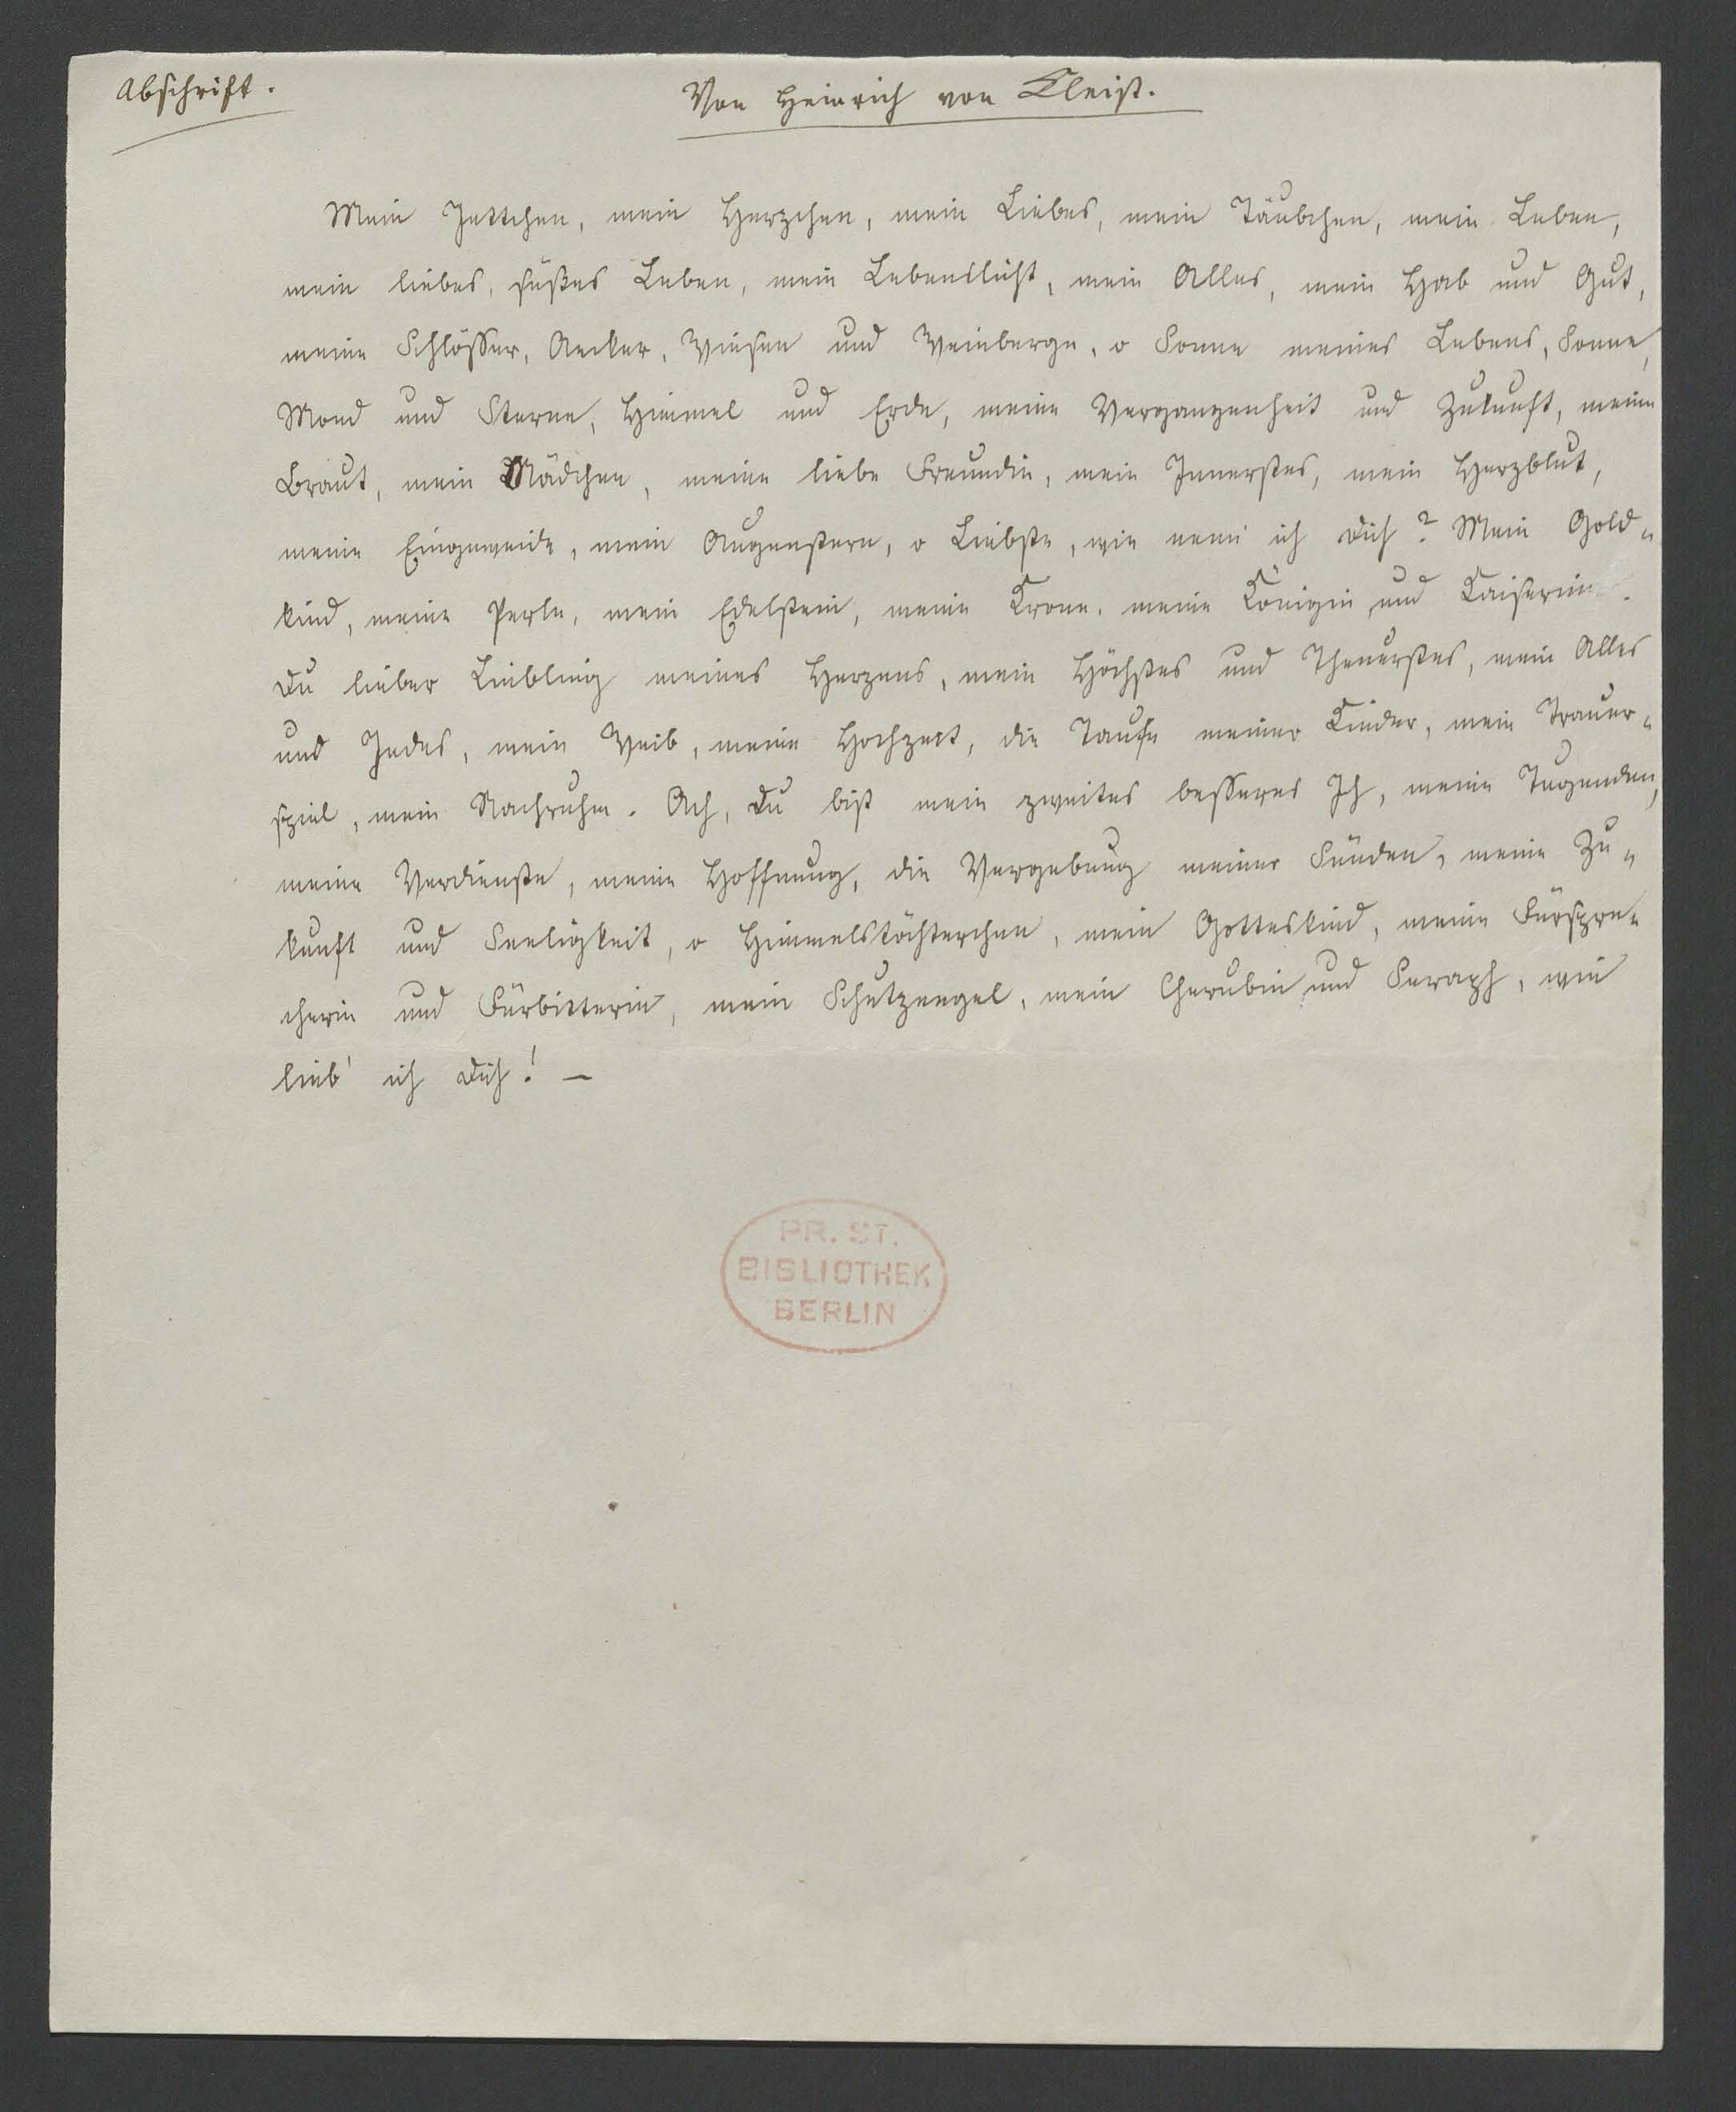 Abschrift.
Von Heinrich von Kleist.
Mein Jettchen, mein Herzchen, mein Liebes, mein Täubchen, mein Leben,
mein liebes, süßes Leben, mein Lebenslicht, mein Alles, mein Hab und Gut,
meine Schlösser, Aecker, Wiesen und Weinberge, o Sonne meines Lebens, Sonne,
Mond und Sterne, Himmel und Erde, meine Vergangenheit und Zukunft, meine
Braut, mein Mädchen, meine liebe Freundin, mein Innerstes, mein Herzblut,
meine Eingeweide, mein Augenstern, o Liebste, wie nenn' ich Dich? Mein Gold-
kind, meine Perle, mein Edelstein, meine Krone, meine Königin und Kaiserin.
Du lieber Liebling meines Herzens, mein Höchstes und Theuerstes, mein Alles
und Jedes, mein Weib, meine Hochzeit, die Taufe meiner Kinder, mein Trauer-
spiel, mein Nachruhm. Ach, Du bist mein zweites besseres Ich, meine Tugenden,
meine Verdienste, meine Hoffnung, die Vergebung meiner Sünden, meine Zu-
kunft und Seeligkeit, o Himmelstöchterchen, mein Gotteskind, meine Fürspre-
cherin und Fürbitterin, mein Schutzengel, mein Cherubin und Seraph, wie
lieb' ich Dich! —
PR. ST.
BIBLIOTHEK
BERLIN